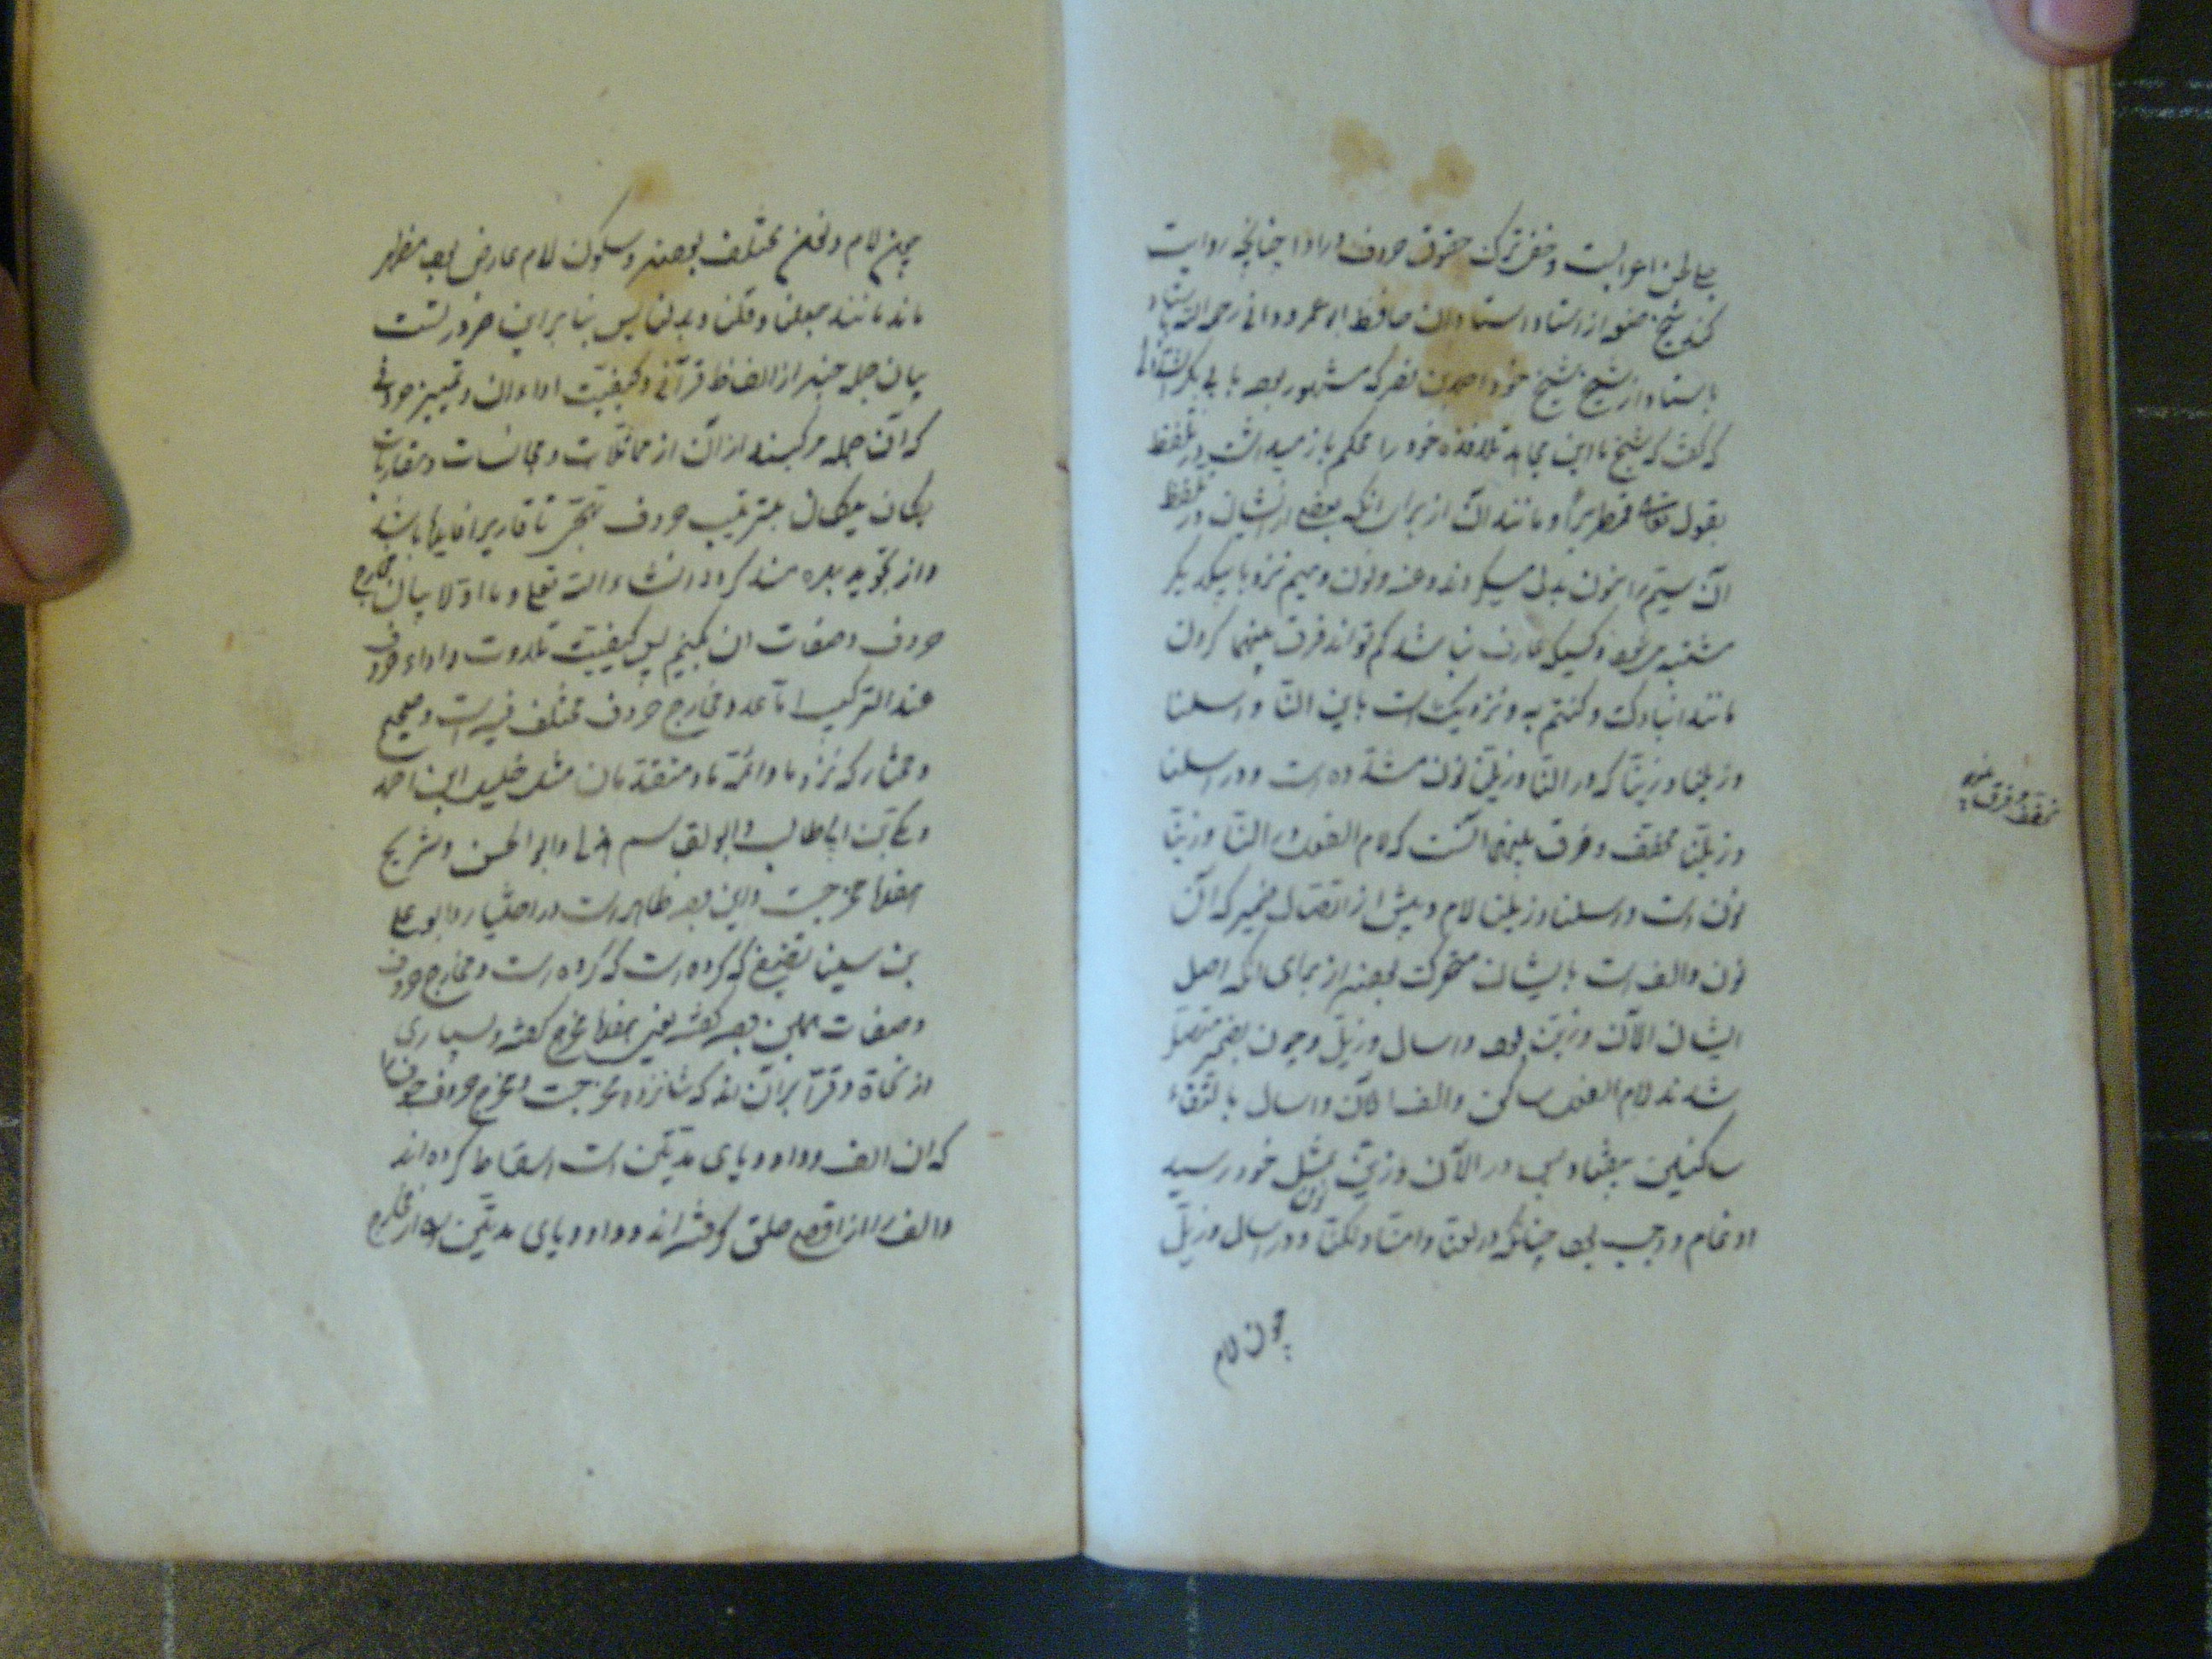 جلی لحن اعرابست و خفی ترک حقوق حروف در ادا چنانچه روایت
کند شیخ از استاد استادان حافظ ابو عمرو دانی رحمه الله باسناد
باسناد از شیخ شیخ خود احمد بن نصر که مشهور بود بابی بکر الشذائی
که گفت که شیخ ما ابن مجاهد تلامذه خود را محکم باز میداشت در تلفظ
بقول تعالی قمطریرا و مانند آن از برای آنکه بعضی از ایشان در تلفظ
آن میم را بنون بدل میکردند و غنه و نون و میم نزد با بیکدیگر
مشتبه می شود و کسیکه عارف نباشد کم تواند فرق بینهما کردن
مانند انباءک و کنتم به و نزدیک است باین النا و ارسلنا
و زیلنا و زینا که در النا و زینا نون مشدده است و در ارسلنا
و زیلنا مخفف و فرق بینهما آنست که لام الفعل در النا و زینا
نون است و در ارسلنا و زیلنا لام و پیش از اتصال ضمیر که آن
نون و الف است بایشان متحرک بودند از برای آنکه اصل
ایشان الان و زین بود و ارسال و زیل و چون بضمیر متصل
شدند لام الفعل ساکن و الف الان و ارسال بالتقاء
ساکنین بیفتاد پس در الان و زین نون بمثل خود رسید
ادغام واجب بود چنانکه در لعنا و امنا و لکنا و در ارسال و زیل
چون لام
چون لام و نون مختلف بودند و سکون لام عارض بود مظهر
ماند مانند جعلنا و قلنا و بدلنا پس بنابراین ضرورتست
بیان جمله چند از الفاظ قرآنی و کیفیت اداء آن و تمییز حروفی
که آن جمله مرکبند از آن از مماثلات و مجانسات و مقاربات
یکان یکان بترتیب حروف تهجی تا قاری را فایدها باشد
و از تجوید بهره مند گردد انشاء الله تعالی و ما اولا بیان مخارج
حروف و صفات آن بکنیم پس کیفیت تلاوت و اداء حروف
عند الترکیب اما عدد مخارج حروف مختلف فیه است و صحیح
و مختار که نزد ما و ائمه ما و متقدمان مثل خلیل ابن احمد
و مکی بن ابی طالب و ابو القاسم هذلی و ابو الحسن و شریح
هفده مخرجست و این بود ظاهر است در اختیار و ابو علی
بن سینا تصنیفی که کرده است که کرده است و مخارج حروف
و صفات همین بود گفته یعنی هفده مخرج گفته و بسیاری
از نحاة و قرا بر آن اند که شانزده مخرجست و مخرج حروف جوف را
که آن الف و واو و یای مدیتین است اسقاط کرده اند
و الف را از اقصی حلق گرفته اند و واو و یای مدیتین را از مخارج